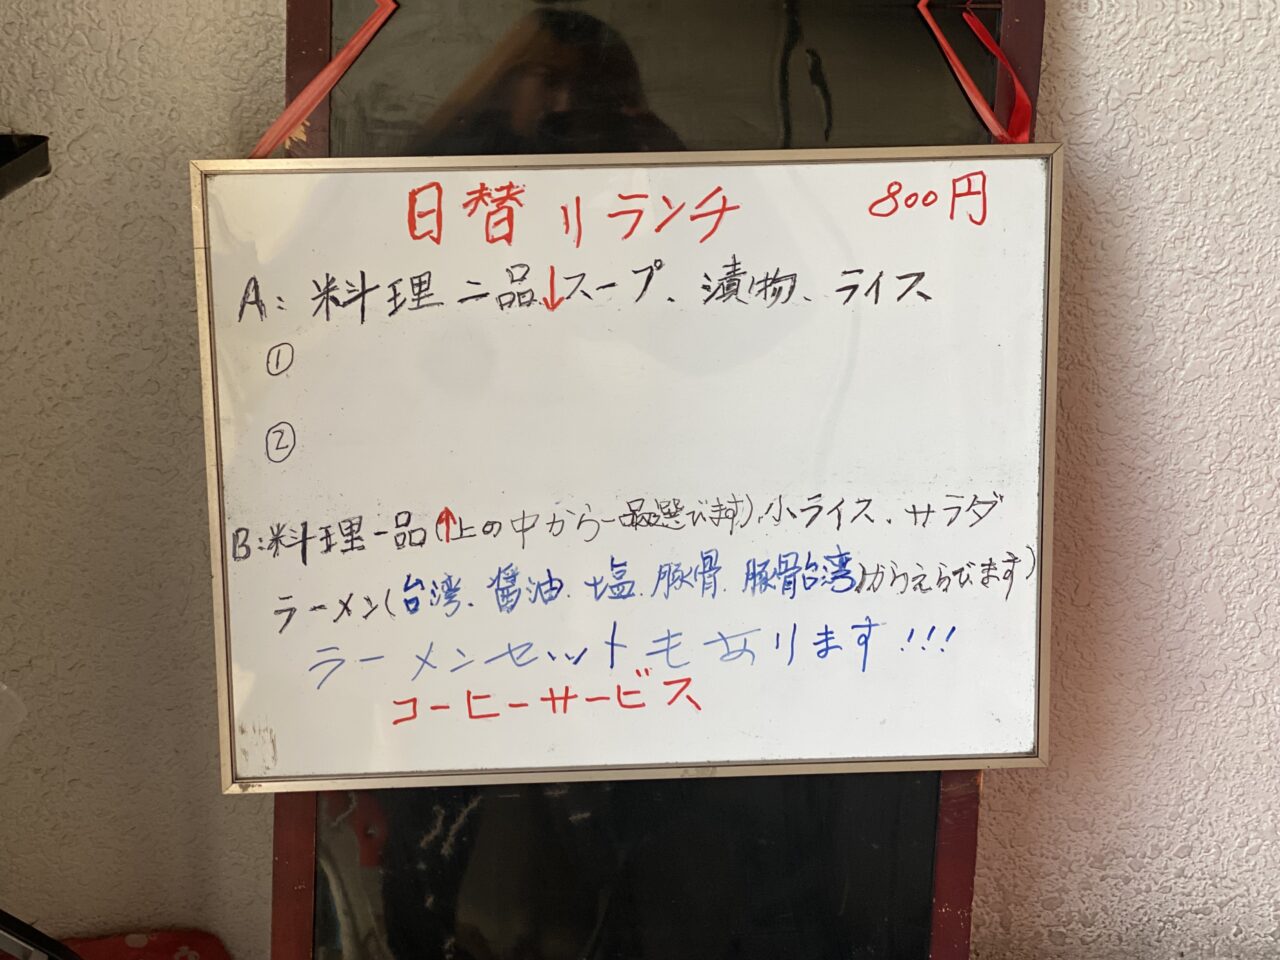 日替りランチ 800円
A:料理二品↓スープ、漬物、ライス
①
②
B:料理一品(↑上の中から一品選びます)、小ライス、サラダ
ラーメン(台湾、醤油、塩、豚骨、豚骨台湾)からえらびます)
ラーメンセットもあります!!!
コーヒーサービス